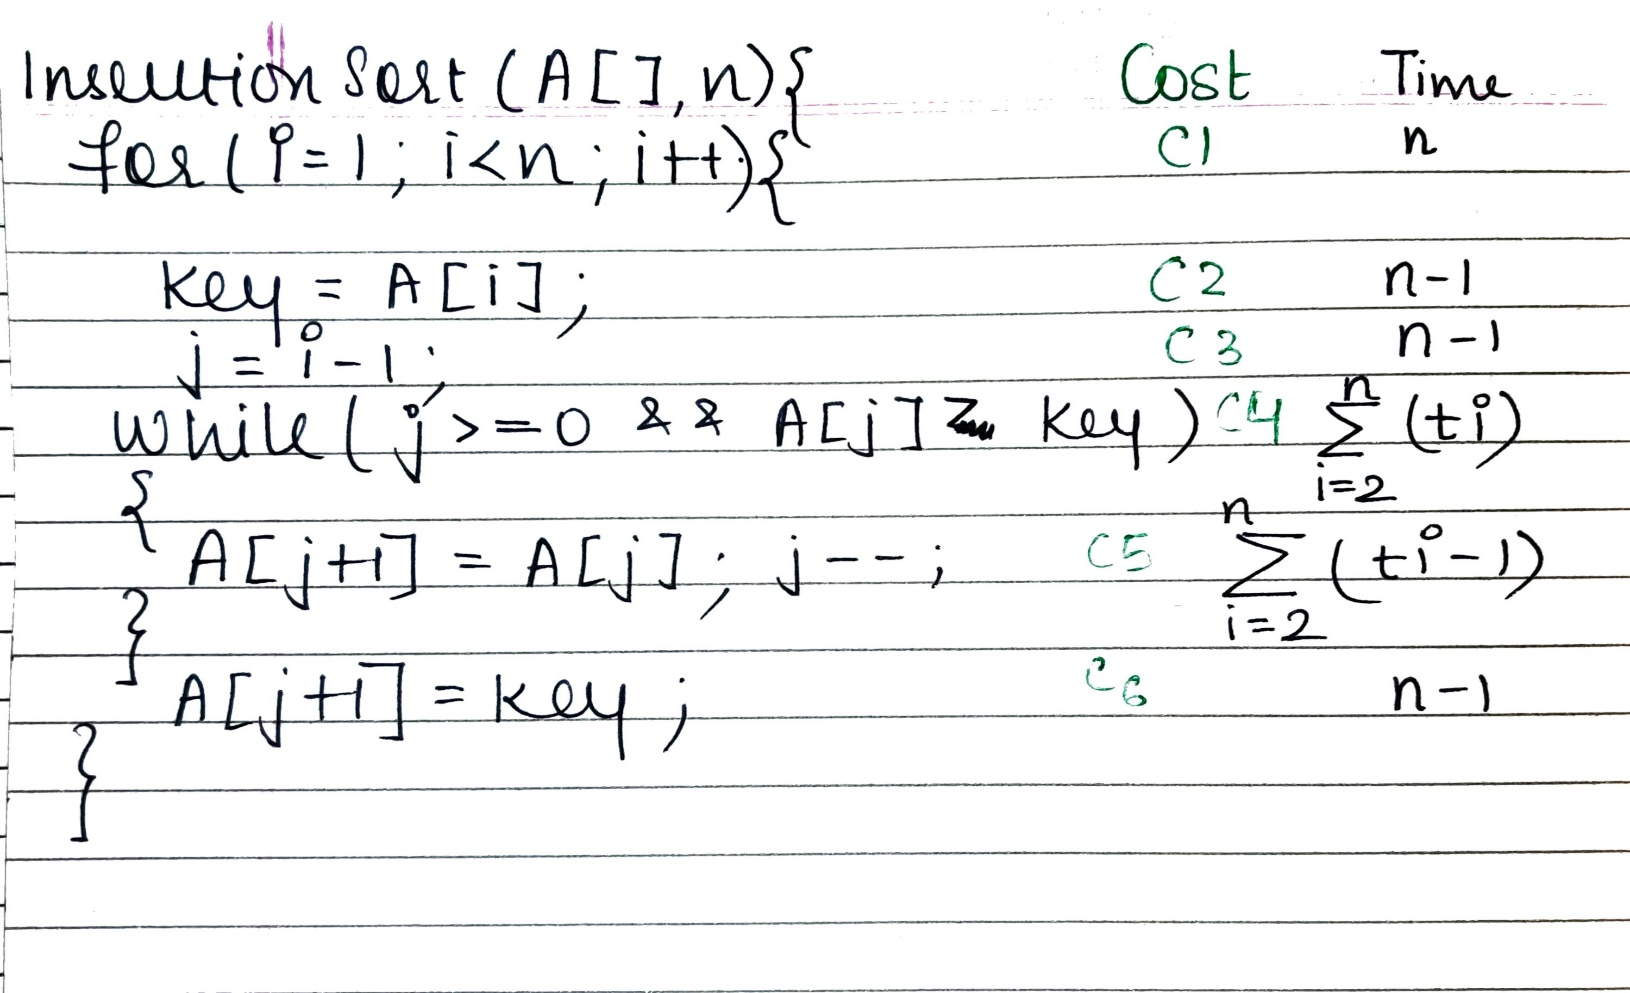 Insertion Sort (A[], n){ Cost Time
for(i=1; i<n; i++){ C1 n
Key = A[i]; C2 n-1
j = i-1; C3 n-1
while(j>=0 && A[j] > Key) C4 n∑i=2 (ti)
{
A[j+1] = A[j]; j--; C5 n∑i=2 (ti-1)
}
A[j+1] = Key; C6 n-1
}